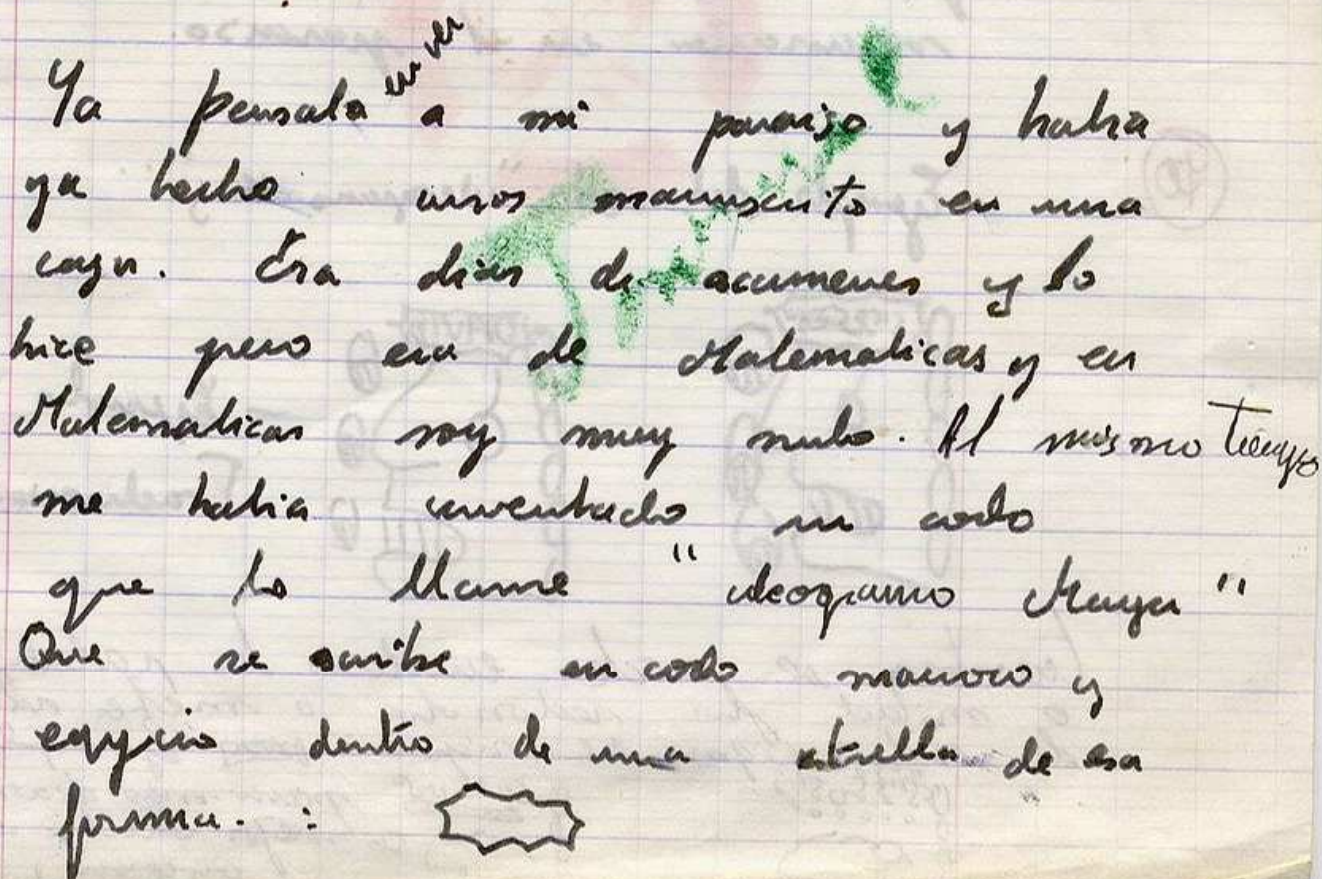 Ya pensaba en ver a mi paraiso y habia
ya hecho unos manuscrito en una
caja. Era dias de acumenes y lo
hice pero era de Matematicas y en
Matematicas soy muy nulo. Al mismo tiempo
me habia inventado un codo
que lo llame " ideogramo Maya "
Que se scribe en codo marroco y
egypcio dentro de una strella de esa
forma. :